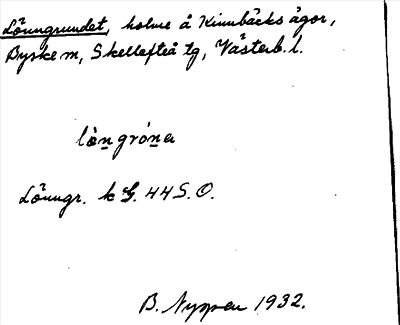 Lönngrundet, holme å Kinnbäcks ägor,
Byske sn, Skellefteå tg, Västerb. l.
lòn̠gró̠na
Lönngr. k G. 44 S.O.
B. Nyman 1932.